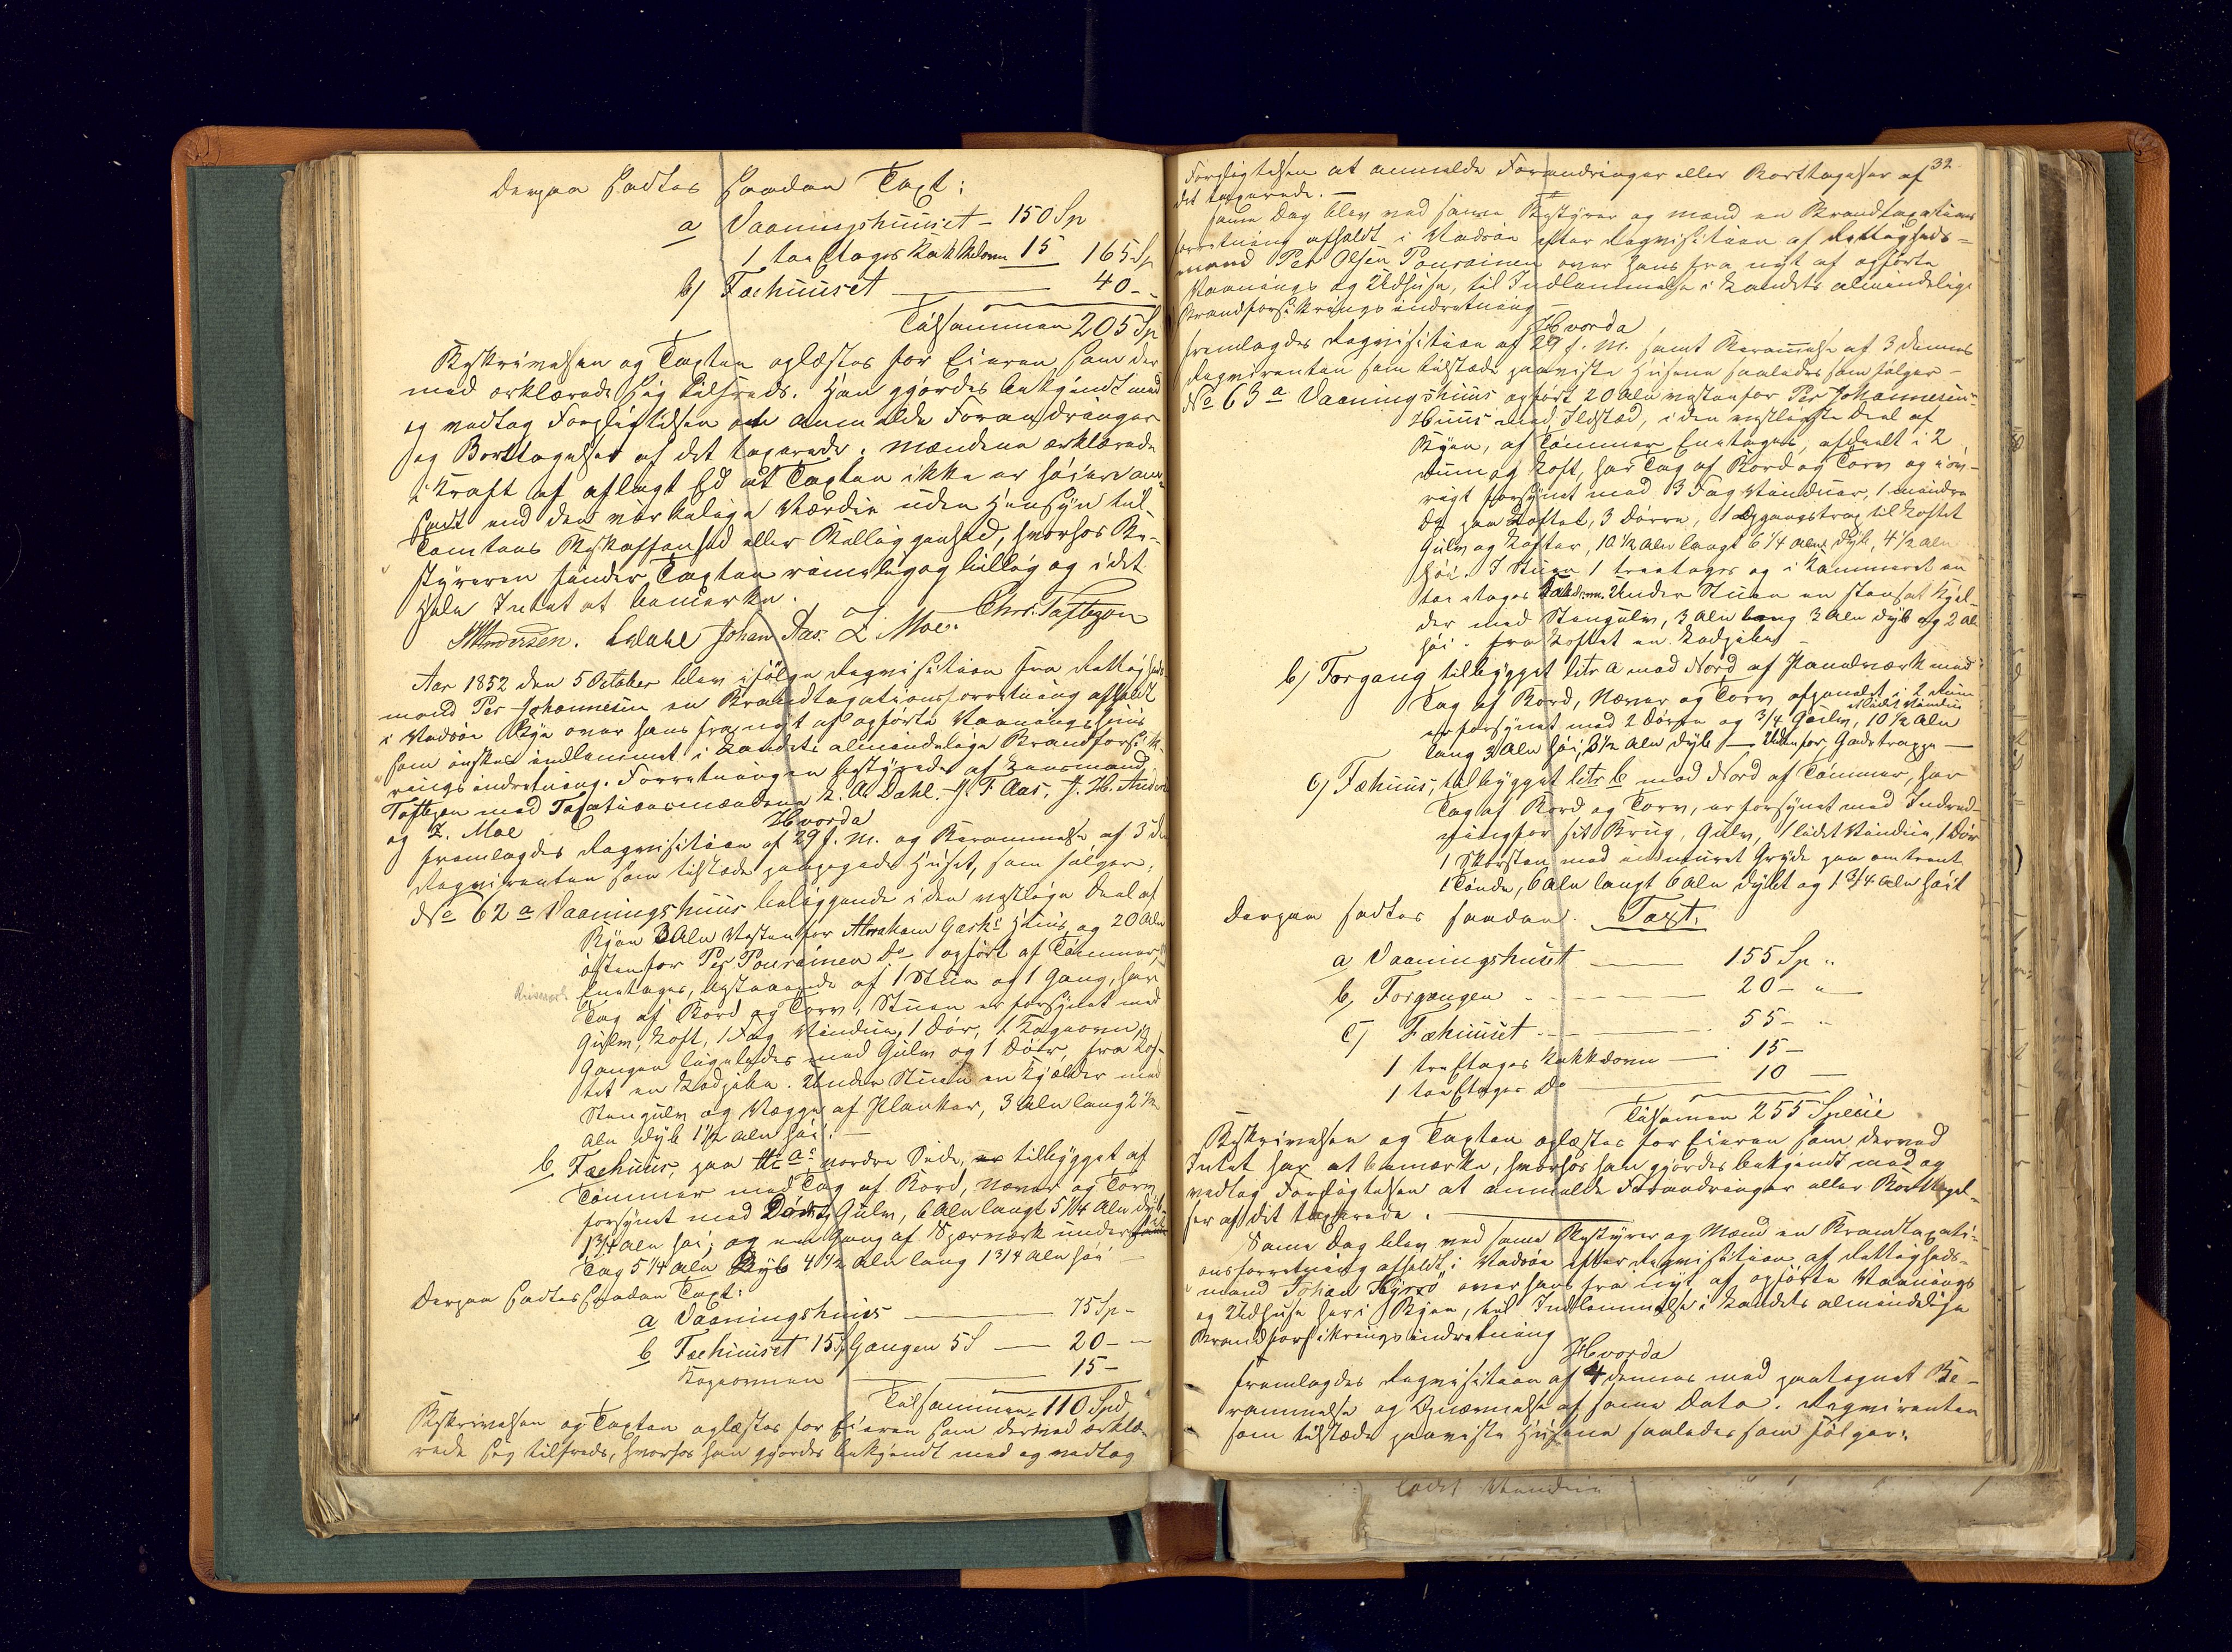 Derpaa sadtes saadan Taxt:
a Vaaningshuuset - 150 Sp
1 toe Etages Kakkelovn 15 165 Sp
b) Fæhuuset 40 -
Tilsammen 205 Sp
Beskrivelsen og Taxten oplæstes for Eieren som der
med erklærede sig tilfreds. Han gjordes bekjendt med
og vedtog Forpligtelsen at anmelde Forandringer
og Borttagelser af det taxerede. Mændene erklærede
i Kraft af aflagt Ed at Taxten ikke er høiere an-
sadt end den virkelige Værdie uden Hensyn til
Tomtens Beskaffenhed eller Beliggenhed, hvorhos Be-
styreren finder Taxten rimelig og billig og i det
Hele Intet at bemærke.
JHAndersen. LADahl Johan Aas. Z. Moe. Chr. Tostegon
Aar 1852 den 5 October blev ifølge Reqvisition fra Rettigheds
mand Per Johannesen en Brandtaxationsforretning afholdt
i Vadsøe Bye over hans fra nyt af opførte Vaaningshuus
som ønskes indlemmet i Landets almindelige Brandforsik-
rings indretning. Forretningen bestyredes af Lensmand
Tostegon med Taxationsmændene L. A. Dahl. J. F. Aas. J. H. Anders
og Z. Moe
Hvorda
fremlagdes Reqvisition af 29 f. M. og Berammelse af 3 d
Reqvirenten som tilstede paapegede Huset, som følger:
No 62 a Vaaningshuus beliggende i den vestlige Deel af
Byen 3 Alen Vesten for Abraham Gasks Huus og 20 Alen
østen for Per Pourainen Do opført af Tømmer,
Eenetages, bestaaende af 1 Stue og 1 Gang, har
Tag af Bord og Torv, Stuen er forsynet med
Gulv, Loft, 1 Fag Vindue, 1 Dør, 1 Kogeovn,
Gangen ligeledes med Gulv og 1 Dør, fra Lof-
tet en Ledpibe. Under Stuen en Kjælder med
Steengulv og Vægge af Planker, 3 Alen lang 2 1/2
Alen dyb 1 1/2 Alen høi. -
b Fæhuus, paa Litr a's nordre Side, er tilbygget af
Tømmer med Tag af Bord, Næver og Torv
forsynet med Dør, Gulv, 6 Alen langt 5 1/4 Alen dybt
1 3/4 Alen høi; og en Gang af Spærværk under
Tag 5 1/4 Alen dyb 4 1/2 Alen lang 1 3/4 Alen høi
Derpaa sadtes saadan Taxt:
a Vaaningshuus 75 Sp -
b Fæhuuset 15 Sp Gangen 5 S 20 -
Kogeovnen 15 -
Tilsammen 110 Spd
Beskrivelsen og Taxten oplæstes for Eieren som dermed erklæ-
rede sig tilfreds, hvorhos han gjordes bekjendt med og vedtog
32
Forpligtelsen at anmelde Forandringer eller Borttagelser af
det taxerede. -
Samme Dag blev ved samme Bestyrer og Mænd en Brandtaxations
forretning afholdt i Vadsøe efter Reqvisition af Rettigheds-
mand Per Olsen Pourainen over hans fra nyt af opførte
Vaanings og Udhuse, til Indlemmelse i Landets almindelige
Brandforsikrings indretning
Hvorda
fremlagdes Reqvisition af 29 f. M. samt Berammelse af 3 dennes
Reqvirenten som tilstede paaviste Husene saaledes som følger -
No 63 a Vaaningshuus opført 20 Alen vesten for Per Johannesens
Huus med Ildsted, i den vestligste Deel af
Byen, af Tømmer Eenetages, afdeelt i 2
Rum og Loft, har Tag af Bord og Torv og iøv-
rigt forsynet med 3 Fag Vinduer, 1 mindre
Do paa Loftet, 3 Dørre, 1 Opgangstrap til Loftet
Gulv og Lofter, 10 1/2 Alen langt 6 1/4 Alen dyb, 4 1/2 Alen
høi. I Stuen 1 treetages og i Kammeret en
toe etages Kakelovn. Under Stuen en stensat Kjel-
der med Stengulv, 3 Alen lang 3 Alen dyb og 2 Al
høi. fra Loftet en Ledpibe -
b) Forgang tilbygget Litr a mod Nord af Pandværk med
Tag af Bord, Næver og Torv afpanelet i 2 Rum
et lidet Vindue
er forsynet med 2 Dørre og 3/4 Gulv, 10 1/2 Alen
lang 3 Alen høi, 3 1/2 Alen dyb - Udenfor Gadetrappe -
c) Fæhuus, tilbygget Litr b mod Nord af Tømmer, har
Tag af Bord og Torv, er forsynet med Indred-
ning for sit Brug, Gulv, 1 lidet Vindue, 1 Dør
1 Skorsten med indmuret Gryde paa omtrent
1 Tønde, 6 Alen langt 6 Alen dybt og 1 3/4 Alen høit
Derpaa sadtes saadan Taxt:
a Vaaningshuset 155 Sp "
b, Forgangen 20 - "
c) Fæhuuset 55 - "
1 tre Etages Kakkelovn 15 -
1 toe Etages Do 10 -
Tilsamen 255 Specie
Beskrivelsen og Taxten oplæstes for Eieren som derved
Intet har at bemærke, hvorhos han gjordes bekjendt med og
vedtog Forpligtelsen at anmelde Forandringer eller Borttagel-
ser af det taxerede. -
Same Dag blev ved same Bestyrer og Mænd en Brandtaxati-
onsforretning afholdt i Vadsøe efter Reqvisition af Rettigheds-
mand Johan Hyrrö over hans fra nyt af opførte Vaanings
og Udhuse her i Byen, til Indlemmelse i Landets almindelige
Brandforsikringsindretning
Hvorda
fremlagdes Reqvisition af 4 dennes med paategnet Be-
rammelse og Opnævnelse af same Dato. Reqvirenten
som tilstede paaviste Husene saaledes som følger:
lidet Vindue